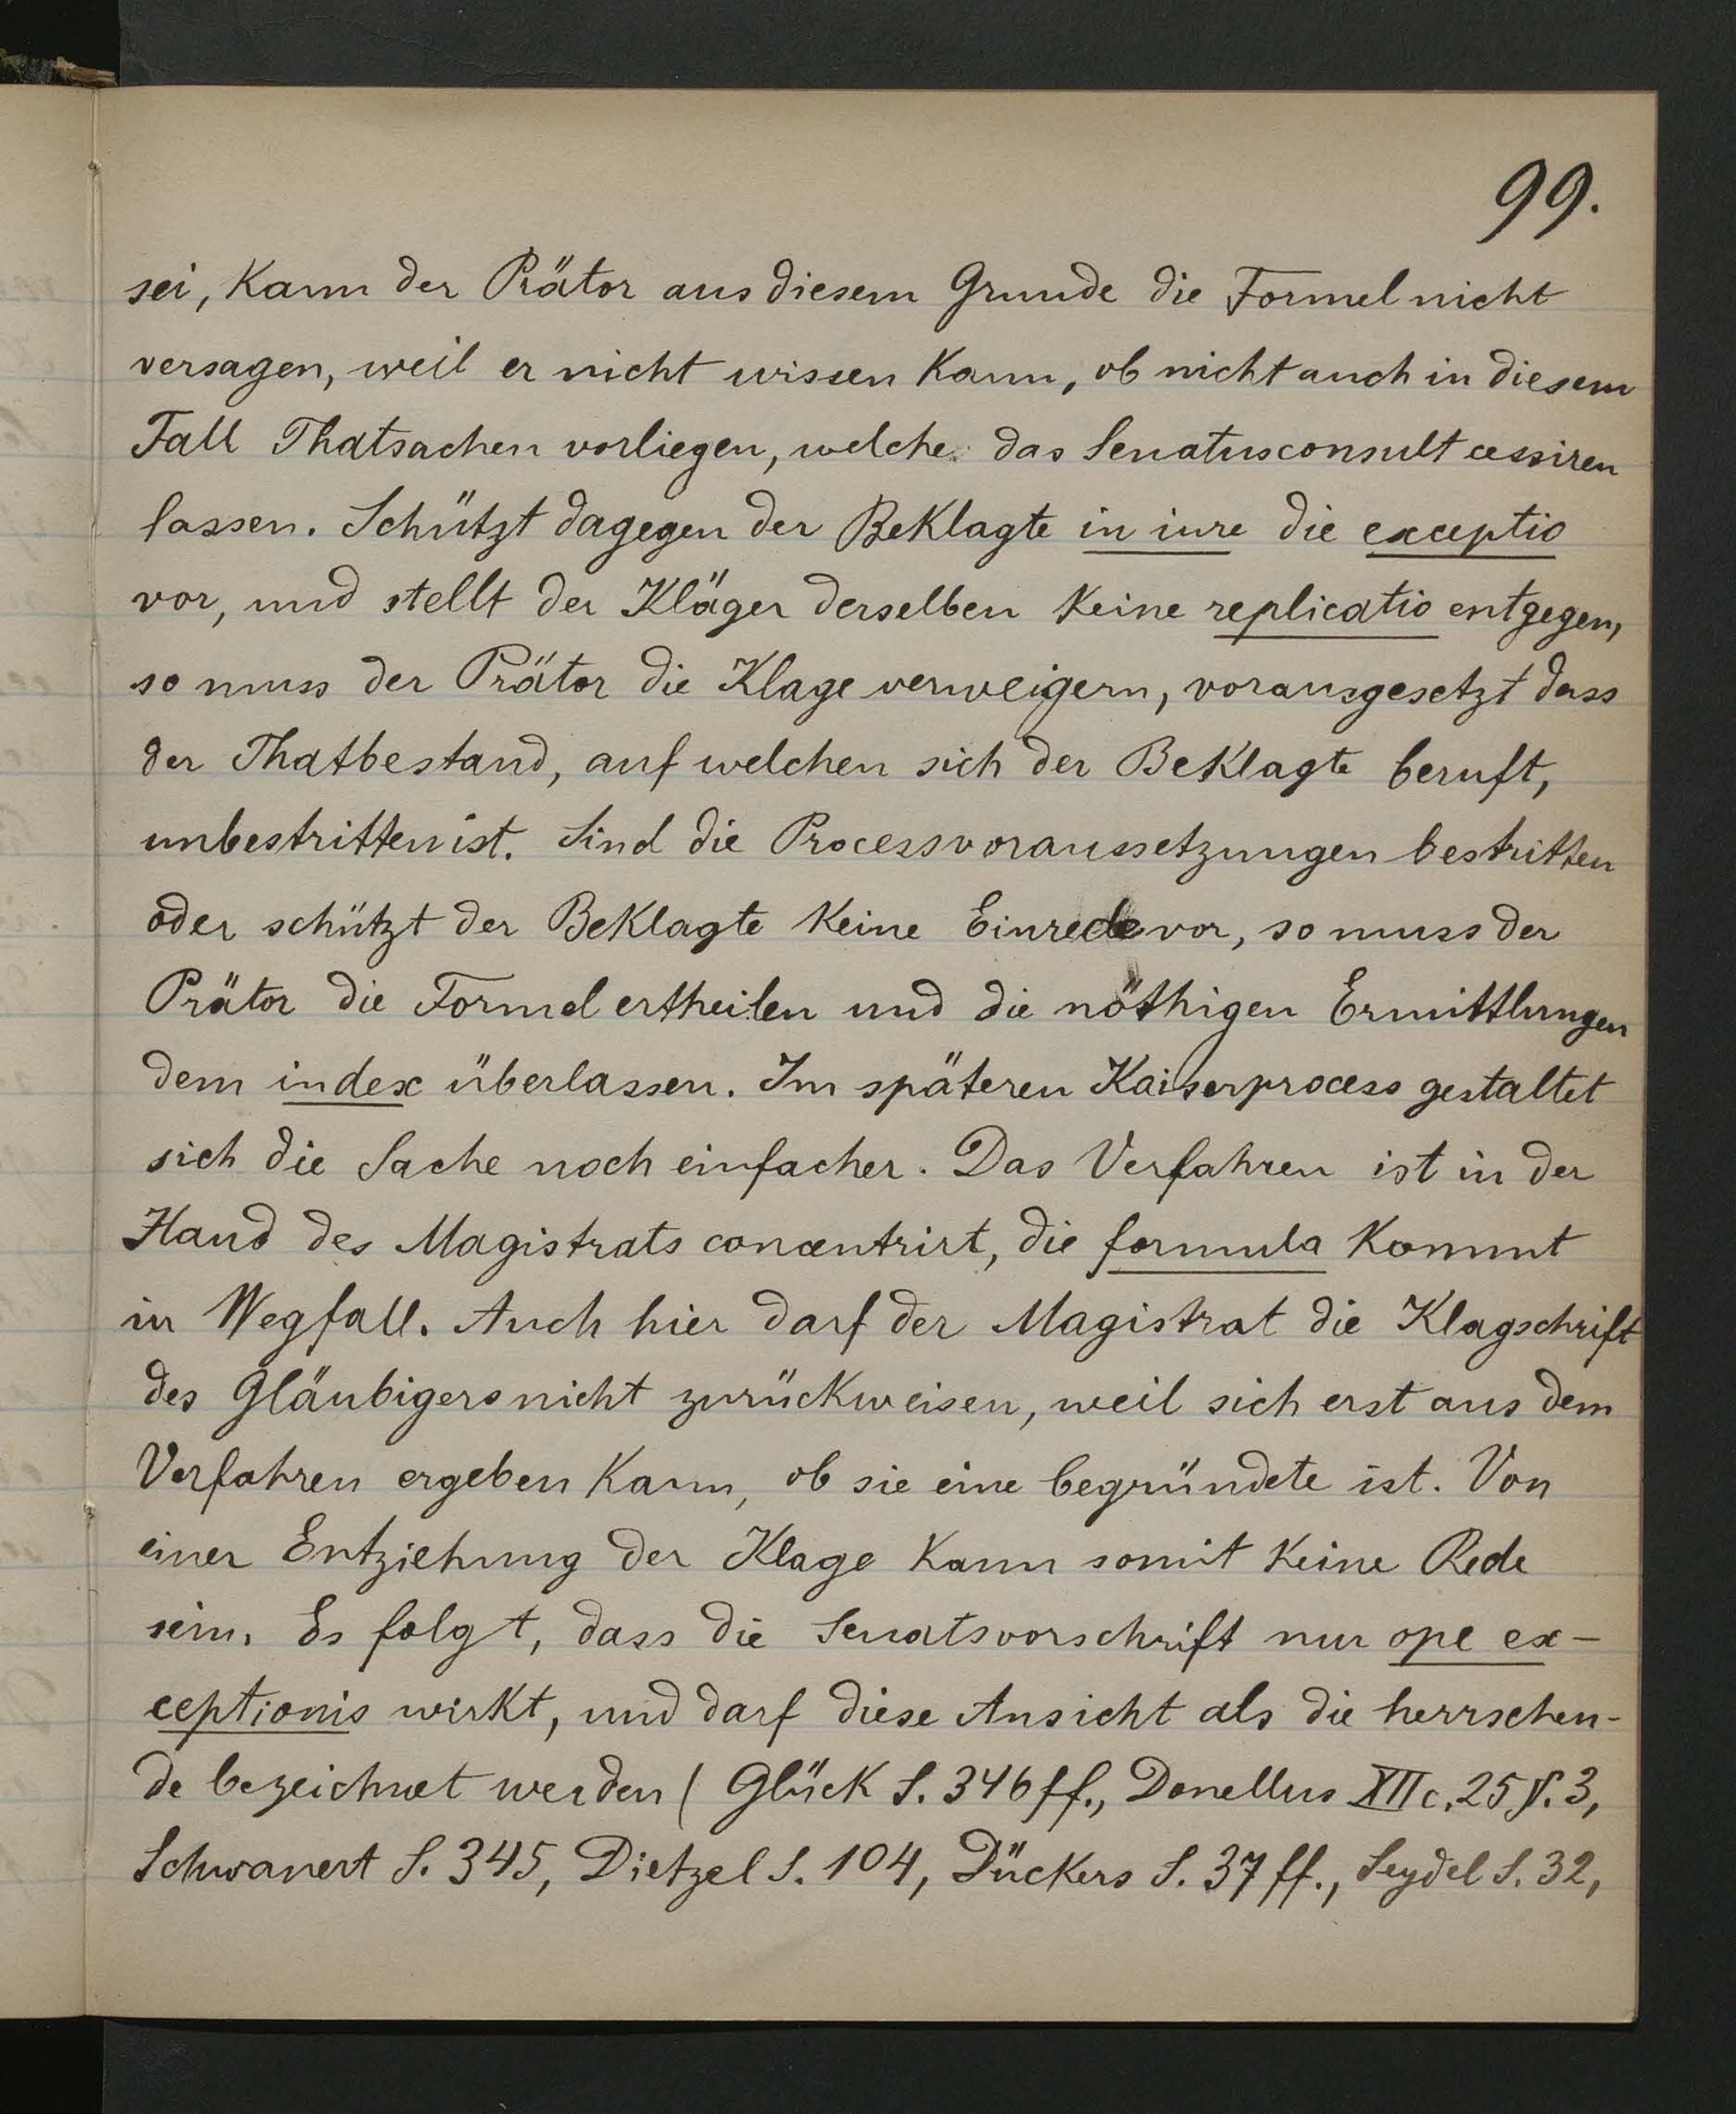 99.
sei, kann der Prätor aus diesem Grunde die Formel nicht
versagen, weil er nicht wissen kann, ob nicht auch in diesem
Fall Thatsachen vorliegen, welche das Senatusconsult cessiren
lassen. Schützt dagegen der Beklagte in iure die exceptio
vor, und stellt der Kläger derselben keine replicatio entgegen,
so muss der Prätor die Klage verweigern, vorausgesetzt dass
der Thatbestand, auf welchen sich der Beklagte beruft,
unbestritten ist. Sind die Processvoraussetzungen bestritten
oder schützt der Beklagte keine Einrede vor, so muss der
Prätor die Formel ertheilen und die nöthigen Ermittlungen
dem iudex überlassen. Im späteren Kaiserprocess gestaltet
sich die Sache noch einfacher. Das Verfahren ist in der
Hand des Magistrats concentrirt, die formula kommt
in Wegfall. Auch hier darf der Magistrat die Klagschrift
des Gläubigers nicht zurückweisen, weil sich erst aus dem
Verfahren ergeben kann, ob sie eine begründete ist. Von
einer Entziehung der Klage kann somit keine Rede
sein. Es folgt, dass die Senatsvorschrift nur ope ex-
ceptionis wirkt, und darf diese Ansicht als die herrschen-
de bezeichnet werden (Glück S. 346 ff., Donellus XII c. 25 §. 3,
Schwanert S. 345, Dietzel S. 104, Dückers S. 37 ff., Seydel S. 32,